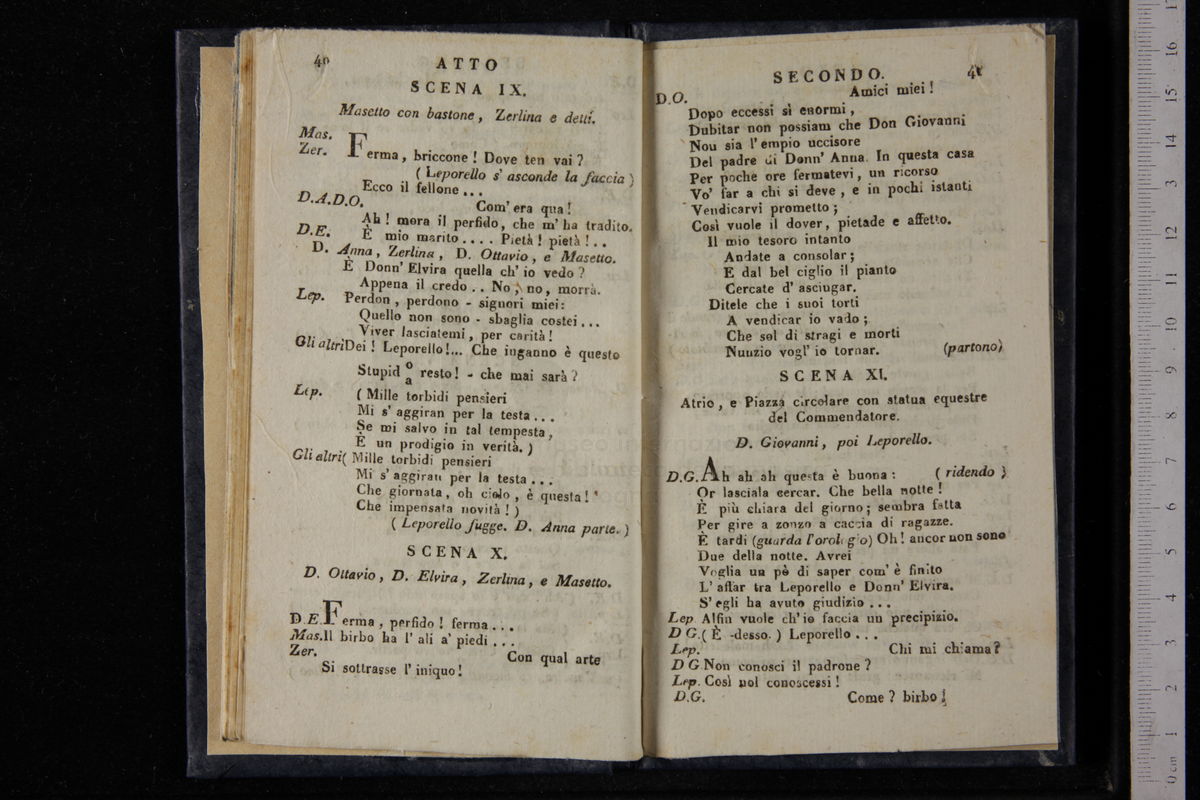 40
ATTO
SCENA IX.
Masetto con bastone, Zerlina e detti.
Mas.
Zer. Ferma, briccone! Dove ten vai?
(Leporello s' asconde la faccia)
Ecco il fellone...
D.A.D.O. Com' era qua!
Ah! mora il perfido, che m' ha tradito.
D.E. È mio marito.... Pietà! pietà!..
D. Anna, Zerlina, D. Ottavio, e Masetto.
È Donn' Elvira quella ch' io vedo?
Appena il credo.. No, no, morrà.
Lep. Perdon, perdono - signori miei:
Quello non sono - sbaglia costei...
Viver lasciatemi, per carità!
Gli altri Dei! Leporello!... Che inganno è questo
Stupid o/a resto! - che mai sarà?
Lep. (Mille torbidi pensieri
Mi s' aggiran per la testa...
Se mi salvo in tal tempesta,
È un prodigio in verità.)
Gli altri (Mille torbidi pensieri
Mi s' aggiran per la testa...
Che giornata, oh cielo, è questa!
Che impensata novità!)
(Leporello fugge. D. Anna parte.)
SCENA X.
D. Ottavio, D. Elvira, Zerlina, e Masetto.
D.E. Ferma, perfido! ferma...
Mas. Il birbo ha l' ali a' piedi...
Zer. Con qual arte
Si sottrasse l' iniquo!
SECONDO. 41
D.O. Amici miei!
Dopo eccessi sì enormi,
Dubitar non possiam che Don Giovanni
Nou sia l' empio uccisore
Del padre di Donn' Anna. In questa casa
Per poche ore fermatevi, un ricorso
Vo' far a chi si deve, e in pochi istanti
Vendicarvi prometto;
Così vuole il dover, pietade e affetto.
Il mio tesoro intanto
Andate a consolar;
E dal bel ciglio il pianto
Cercate d' asciugar.
Ditele che i suoi torti
A vendicar io vado;
Che sol di stragi e morti
Nunzio vogl' io tornar. (partono)
SCENA XI.
Atrio, e Piazza circolare con statua equestre
del Commendatore.
D. Giovanni, poi Leporello.
D.G. Ah ah ah questa è buona: (ridendo)
Or lasciala cercar. Che bella notte!
È più chiara del giorno; sembra fatta
Per gire a zonzo a caccia di ragazze.
È tardi (guarda l'orologio) Oh! ancor non sono
Due della notte. Avrei
Voglia un pò di saper com' è finito
L' affar tra Leporello e Donn' Elvira.
S' egli ha avuto giudizio...
Lep Alfin vuole ch' io faccia un precipizio.
D G. (È desso.) Leporello...
Lep. Chi mi chiama?
D G Non conosci il padrone?
Lep. Così nol conoscessi!
D.G. Come? birbo!